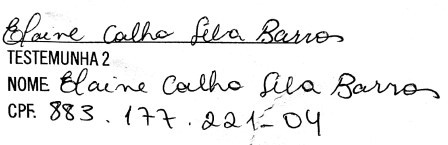 Elaine Calho Silva Barros
TESTEMUNHA 2
NOME Elaine Calho Silva Barros
CPF. 883.177.221-04